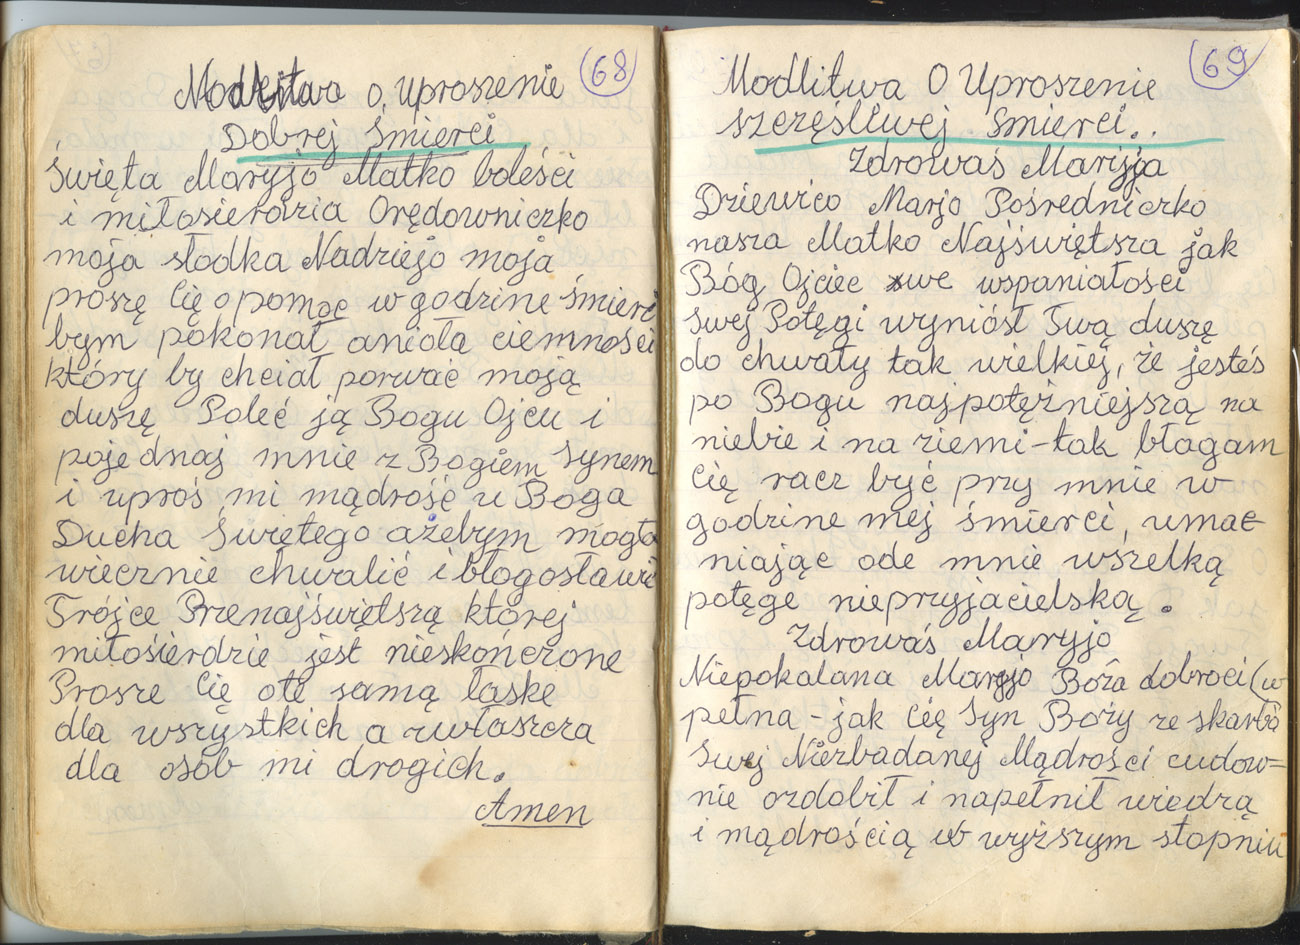 (68)
Modlitwa o, uproszenie
Dobrej Śmierci
Święta Maryjo Matko boleści
i miłosierdzia Orędowniczko
moja słodka Nadziejo moja
proszę Cię o pomoc w godzinę śmierci
bym pokonał anioła ciemności
który by chciał porwać moją
duszę Poleć ją Bogu Ojcu i
pojednaj mnie z Bogiem Synem
i uproś mi mądrość u Boga
Ducha Świętego ażebym mogła
wiecznie chwalić i błogosławić
Trójce Przenajświętszą której
miłosierdzie jest nieskończone
Prosze Cię ote samą łaskę
dla wszystkich a zwłaszcza
dla osób mi drogich.
Amen
(69)
Modlitwa O Uproszenie
szczęśliwej Śmierci..
Zdrowaś Maryja
Dziewico Marjo Pośredniczko
nasza Matko Najświętsza jak
Bóg Ojciec we wspaniałości
swej Potęgi wyniósł Twą duszę
do chwały tak wielkiej, że jesteś
po Bogu najpotężniejszą na
niebie i na ziemi-tak błagam
Cię racz być przy mnie w
godzine mej śmierci umac
niając ode mnie wszelką
potęgę nieprzyjacielską.
Zdrowaś Maryjo
Niepokalana Maryjo Boża dobroci (w
pełna - jak Cię Syn Boży ze skarbó
Swej Niezbadanej Mądrości cudow=
nie ozdobił i napełnił wiedzą
i mądrością w wyższym stopniu